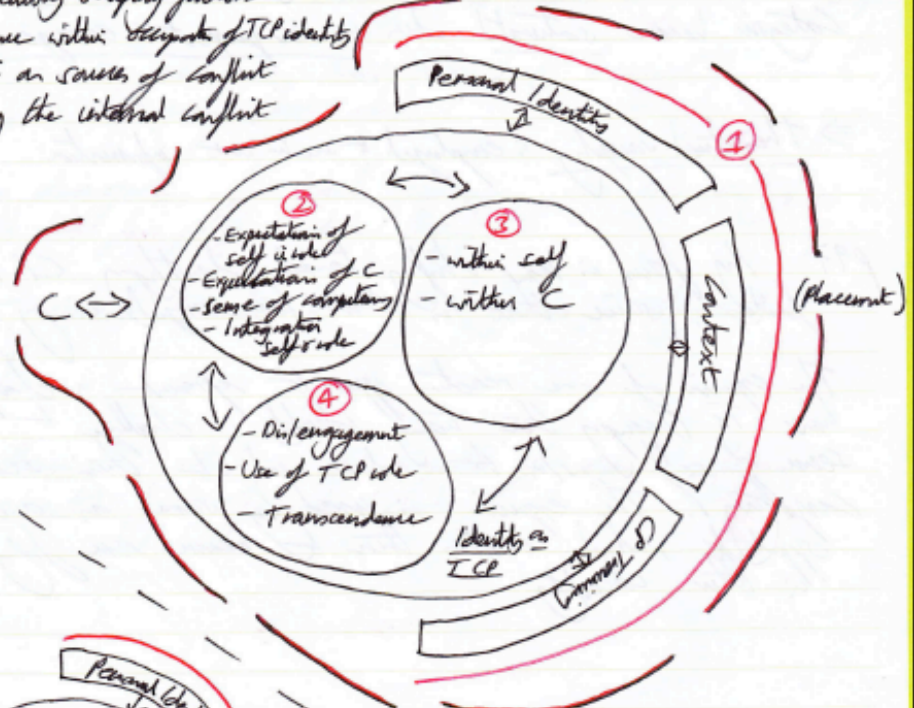 within occupants of TCP identity
as sources of conflict
the internal conflict
Personal Identity
1
2
- Expectation of
self in role
- Expectation of C
- Sense of competency
- Integration
self & role
3
- within self
- within C
C
Context
(Placement)
4
- Dis/engagement
- Use of TCP role
- Transcendence
Identity as
TCP
CP Training
Personal